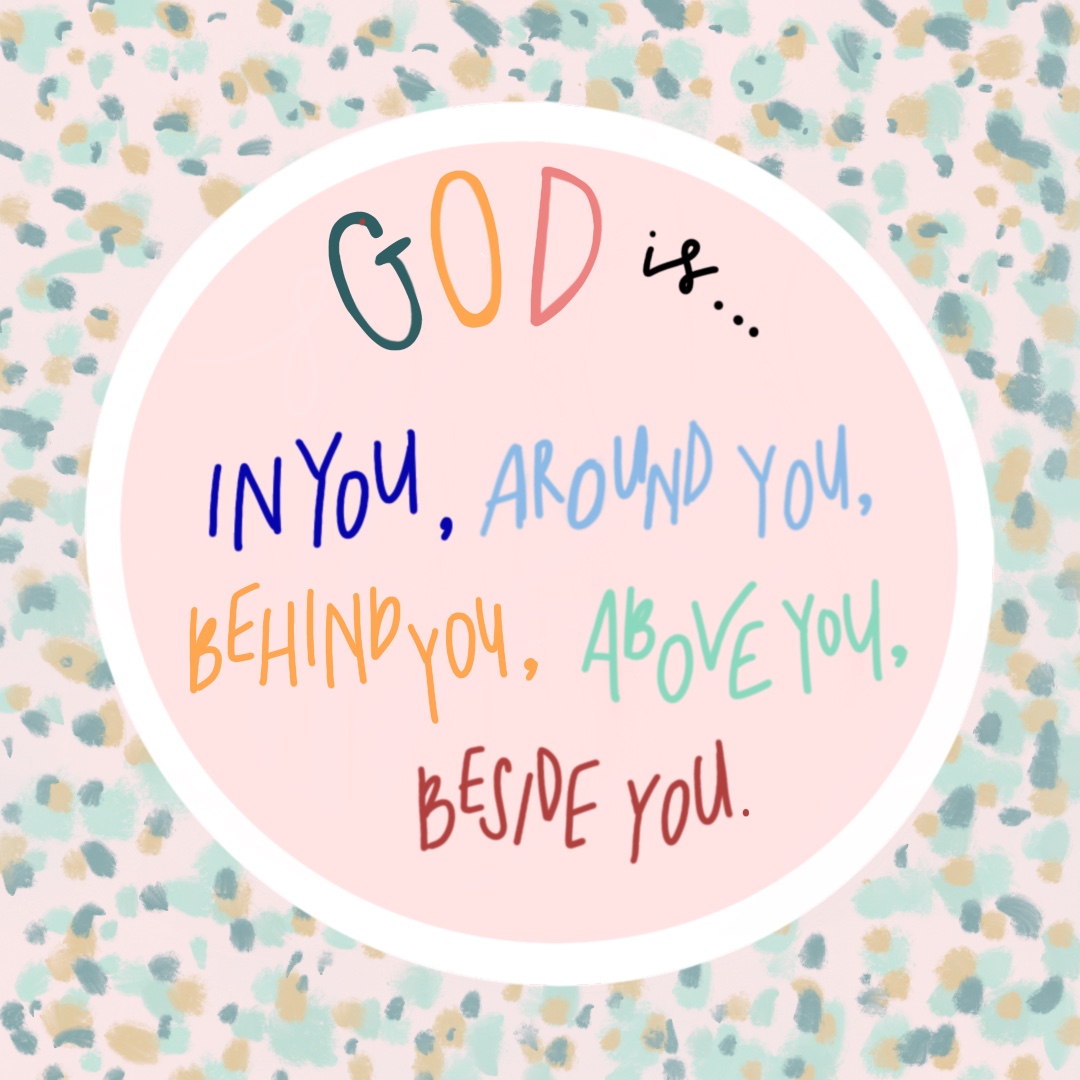 GOD is...
IN YOU, AROUND YOU,
BEHIND YOU, ABOVE YOU,
BESIDE YOU.